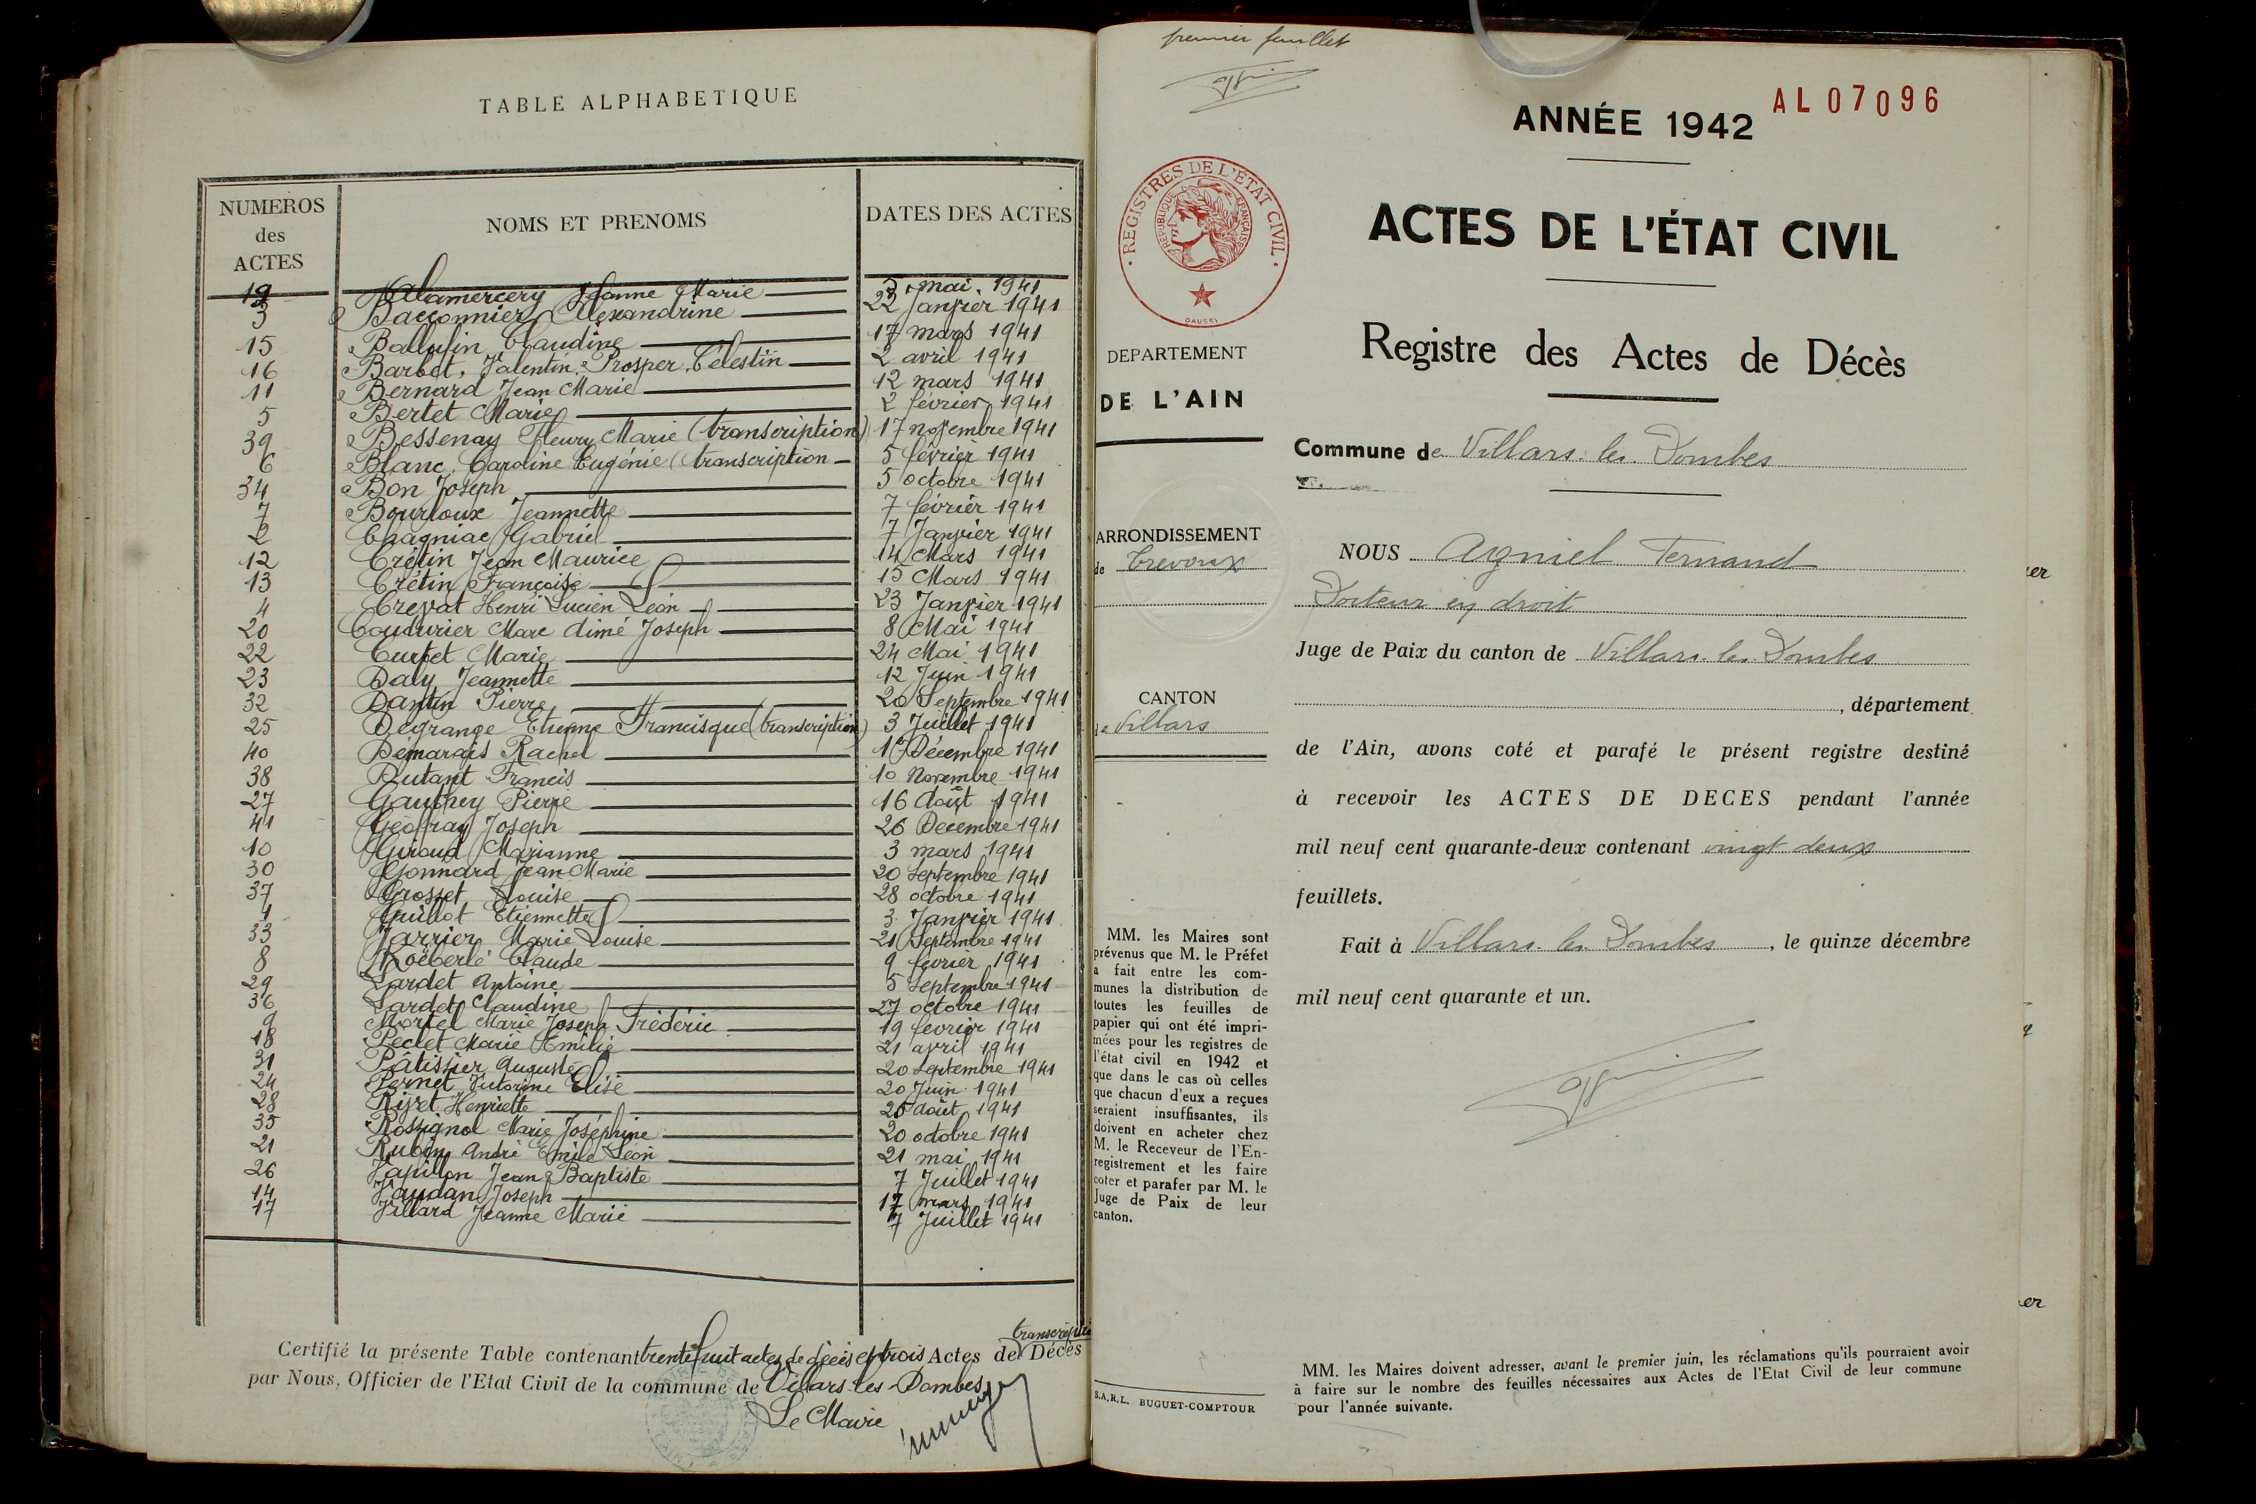 TABLE ALPHABETIQUE
NUMEROS des ACTES NOMS ET PRENOMS DATES DES ACTES
19 Alamercery Jeanne Marie 5 mai 1941
3 Bacconnier Alexandrine 22 Janvier 1941
15 Ballufin Claudine 17 mars 1941
16 Barbet, Valentin, Prosper, Célestin 2 avril 1941
11 Bernard Jean Marie 12 mars 1941
5 Bertet Marie 2 février 1941
39 Bessenay Fleury Marie (transcription) 17 novembre 1941
6 Blanc, Caroline Eugénie (transcription 5 février 1941
34 Bon Joseph 5 octobre 1941
7 Bourloux Jeannette 7 février 1941
2 Chagniac Gabriel 7 Janvier 1941
12 Crétin Jean Maurice 14 Mars 1941
13 Crétin Françoise 15 Mars 1941
4 Crevat Henri Lucien Léon 23 Janvier 1941
20 Coudurier Marc Aimé Joseph 8 Mai 1941
22 Curtet Marie 24 Mai 1941
23 Daly Jeannette 12 Juin 1941
32 Dantin Pierre 20 Septembre 1941
25 Degrange Etienne Francisque (transcription) 3 Juillet 1941
40 Démarais Rachel 1er Décembre 1941
38 Dutant Francis 10 Novembre 1941
27 Gauthey Pierre 16 Août 1941
41 Geoffray Joseph 26 Decembre 1941
10 Giroud Marianne 3 mars 1941
30 Gonnard Jean-Marie 20 Septembre 1941
37 Grosset Louise 28 octobre 1941
1 Guillot Etiennette 3 Janvier 1941
33 Jarrier Marie Louise 21 Septembre 1941
8 Koëberlé Claude 9 février 1941
29 Lardet Antoine 5 Septembre 1941
36 Lardet Claudine 27 octobre 1941
9 Mortel Marie Joseph Frédéric 19 fevrier 1941
18 Peclet Marie Emilie 21 avril 1941
31 Pâtissier Auguste 20 Septembre 1941
24 Pernet Victorine Elise 20 Juin 1941
28 Rivet Henriette 26 août 1941
35 Rossignol Marie Joséphine 20 octobre 1941
21 Rubin André Emile Léon 21 mai 1941
26 Vapillon Jean Baptiste 7 Juillet 1941
14 Vaudan Joseph 17 mars 1941
17 Villard Jeanne Marie 7 Juillet 1941
transcription
Certifié la présente Table contenant trente huit actes de décès et trois Actes de Décès
par Nous, Officier de l'Etat Civil de la commune de Villars-les-Dombes
Le Maire
premier feuillet
ANNÉE 1942
AL07096
REGISTRES DE L'ÉTAT CIVIL
RÉPUBLIQUE FRANÇAISE
DAUSSY
ACTES DE L'ÉTAT CIVIL
Registre des Actes de Décès
DEPARTEMENT
DE L'AIN
Commune de Villars-les-Dombes
ARRONDISSEMENT
de Trevoux
CANTON
de Villars
NOUS Agniel Fernand
Docteur en droit
Juge de Paix du canton de Villars-les-Dombes
, département
de l'Ain, avons coté et parafé le présent registre destiné
à recevoir les ACTES DE DECES pendant l'année
mil neuf cent quarante-deux contenant vingt deux
feuillets.
Fait à Villars-les-Dombes, le quinze décembre
mil neuf cent quarante et un.
MM. les Maires sont
prévenus que M. le Préfet
a fait entre les com-
munes la distribution de
toutes les feuilles de
papier qui ont été impri-
mées pour les registres de
l'état civil en 1942 et
que dans le cas où celles
que chacun d'eux a reçues
seraient insuffisantes, ils
doivent en acheter chez
M. le Receveur de l'En-
registrement et les faire
coter et parafer par M. le
Juge de Paix de leur
canton.
S.A.R.L. BUGUET-COMPTOUR
MM. les Maires doivent adresser, avant le premier juin, les réclamations qu'ils pourraient avoir
à faire sur le nombre des feuilles nécessaires aux Actes de l'Etat Civil de leur commune
pour l'année suivante.
er
er